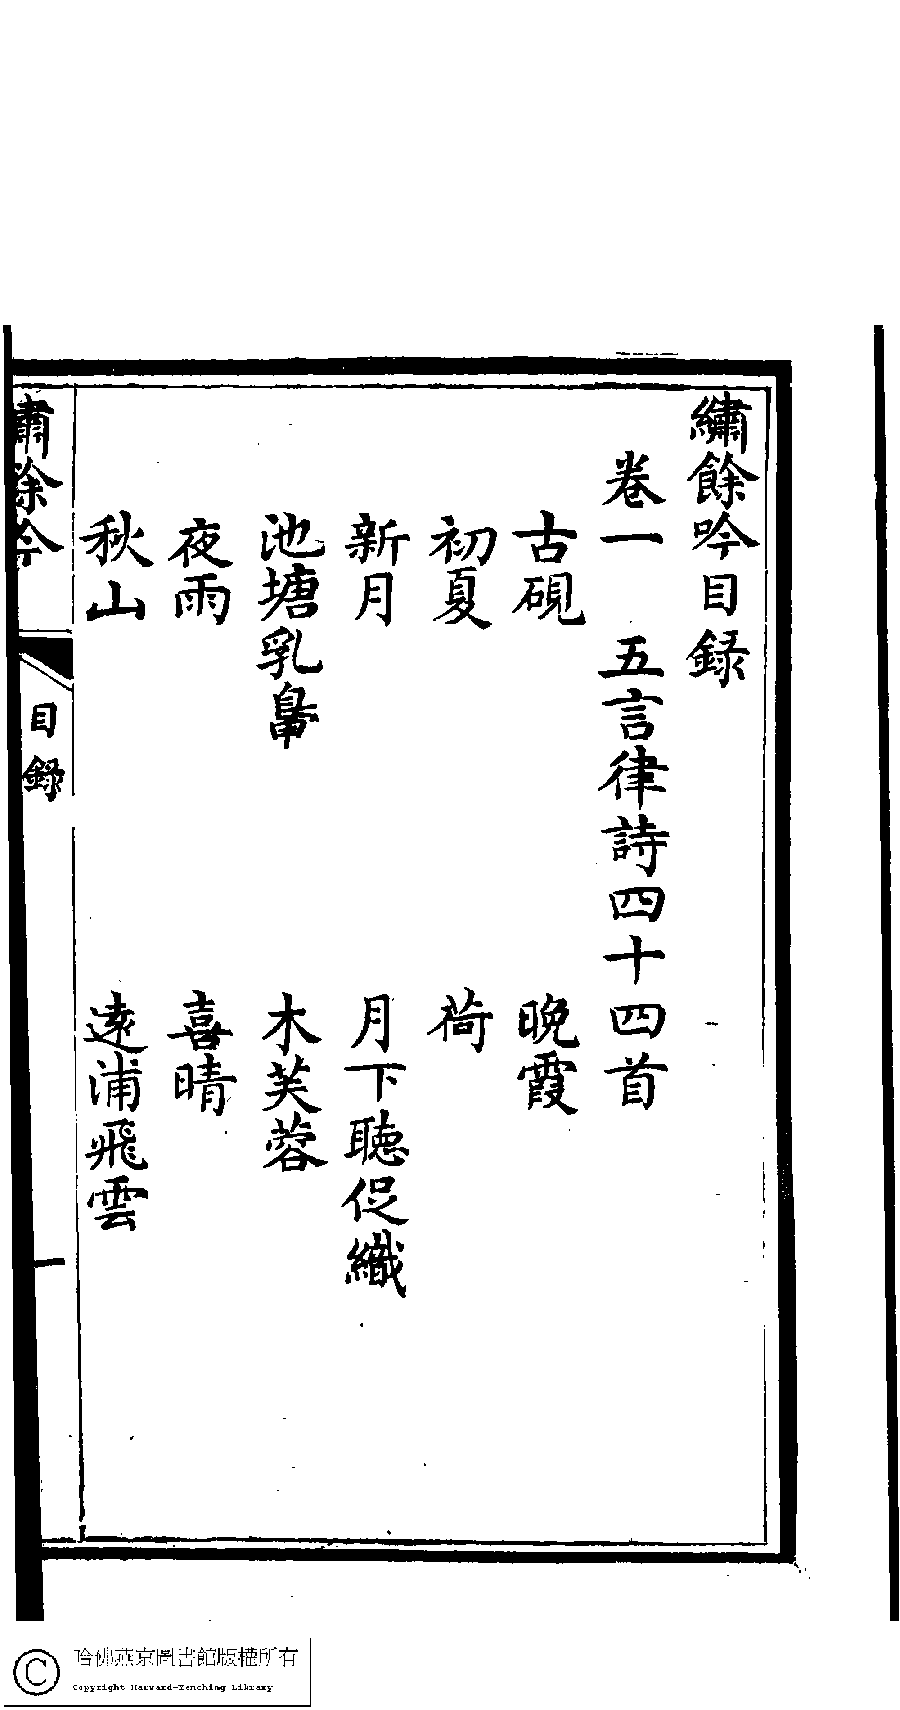 繡餘吟目錄
卷一　五言律詩四十四首
古硯　晚霞
初夏　荷
新月　月下聽促織
池塘乳鳧　木芙蓉
夜雨　喜晴
秋山　遠浦飛雲
繡餘吟　目錄　一
哈佛燕京圖書館版權所有
Copyright Harvard-Yenching Library